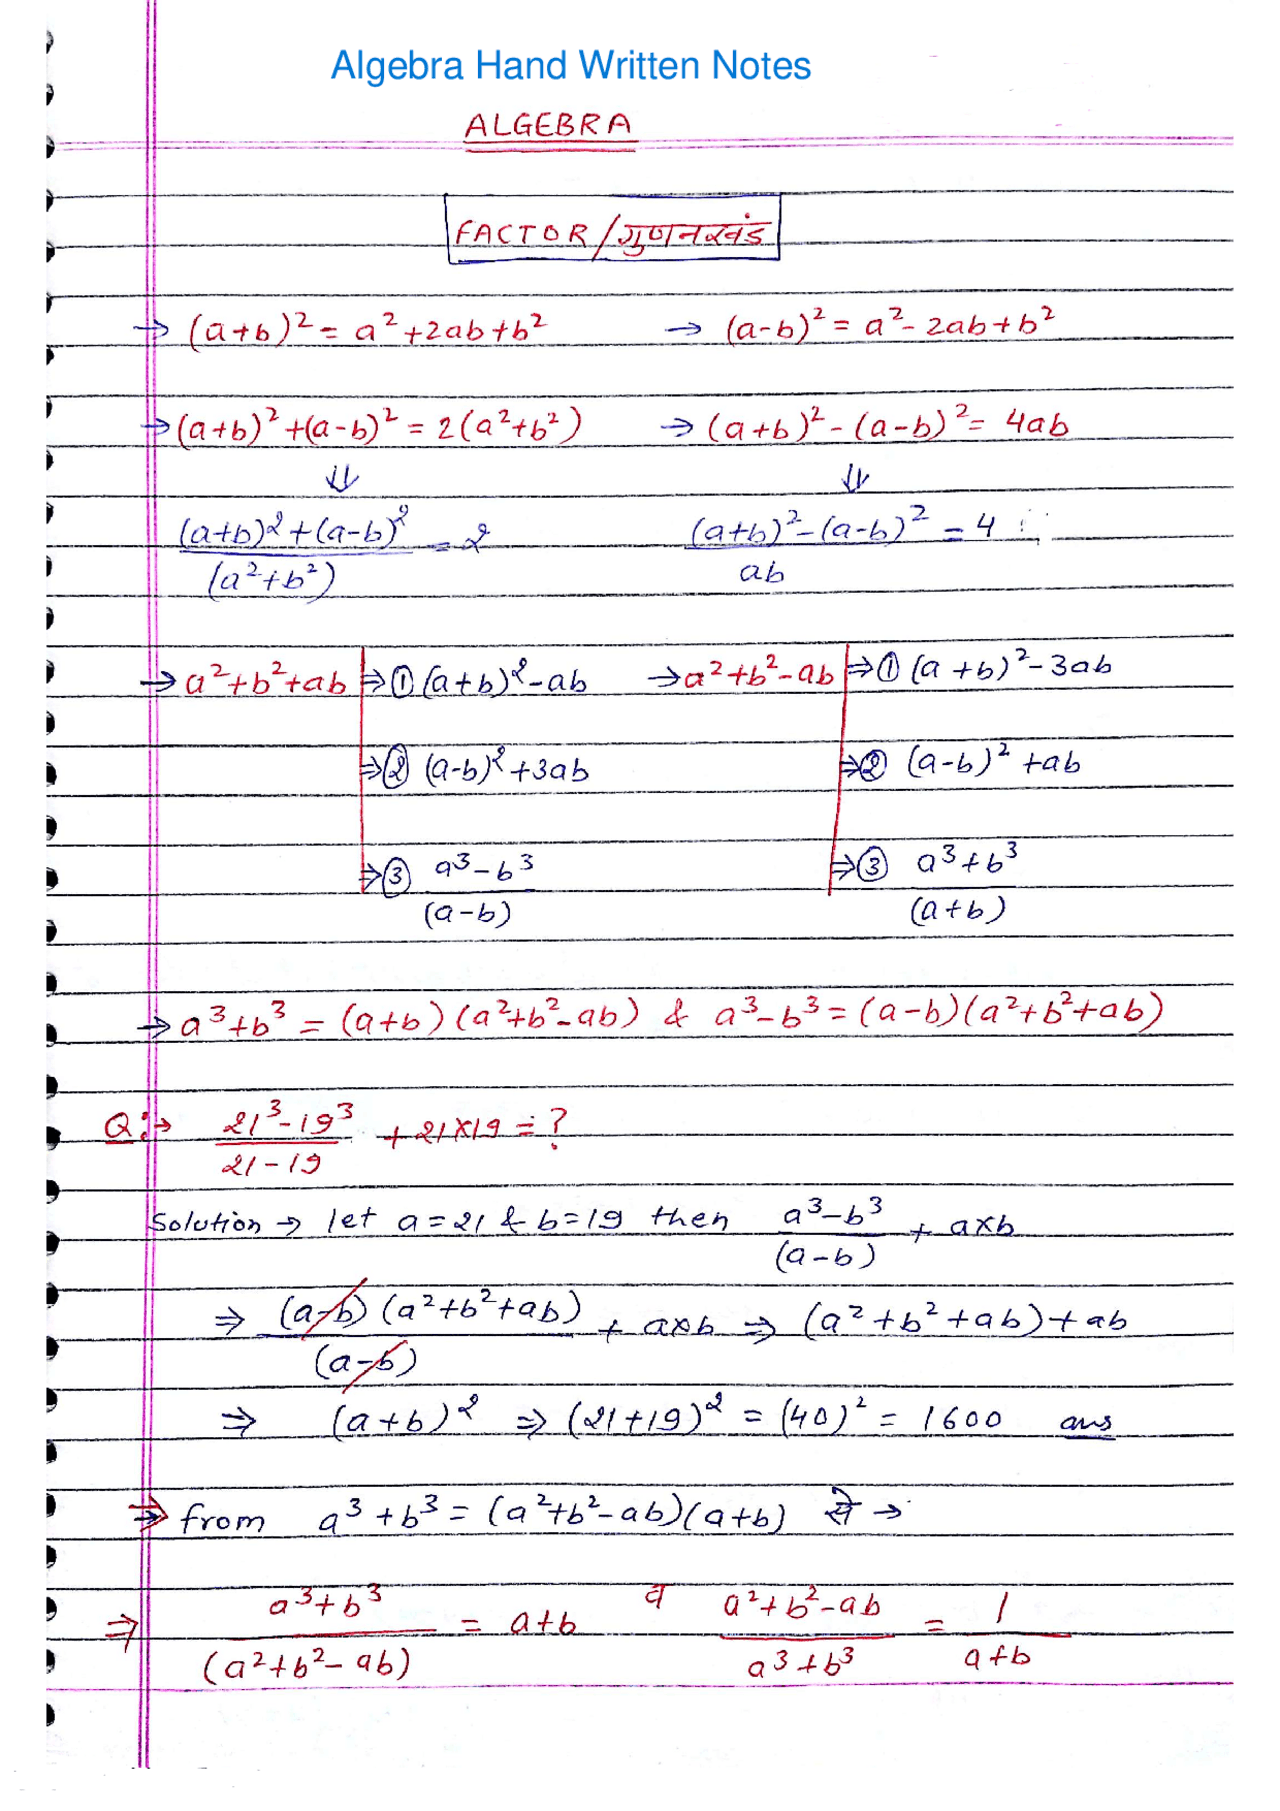 Algebra Hand Written Notes
ALGEBRA
FACTOR/गुणनखंड
→ (a+b)² = a²+2ab+b² → (a-b)² = a²-2ab+b²
→ (a+b)²+(a-b)² = 2(a²+b²) → (a+b)²-(a-b)² = 4ab
⇓ ⇓
(a+b)²+(a-b)² / (a²+b²) = 2 (a+b)²-(a-b)² / ab = 4
→ a²+b²+ab ⇒ ① (a+b)²-ab → a²+b²-ab ⇒ ① (a+b)²-3ab
⇒ ② (a-b)²+3ab ⇒ ② (a-b)²+ab
⇒ ③ a³-b³ / (a-b) ⇒ ③ a³+b³ / (a+b)
→ a³+b³ = (a+b)(a²+b²-ab) & a³-b³ = (a-b)(a²+b²+ab)
Q:→ 21³-19³ / 21-19 + 21×19 = ?
Solution → let a=21 & b=19 then a³-b³ / (a-b) + a×b
⇒ (a-b)(a²+b²+ab) / (a-b) + a×b ⇒ (a²+b²+ab)+ab
⇒ (a+b)² ⇒ (21+19)² = (40)² = 1600 ans
⇒ from a³+b³ = (a²+b²-ab)(a+b) से →
⇒ a³+b³ / (a²+b²-ab) = a+b व a²+b²-ab / a³+b³ = 1 / a+b